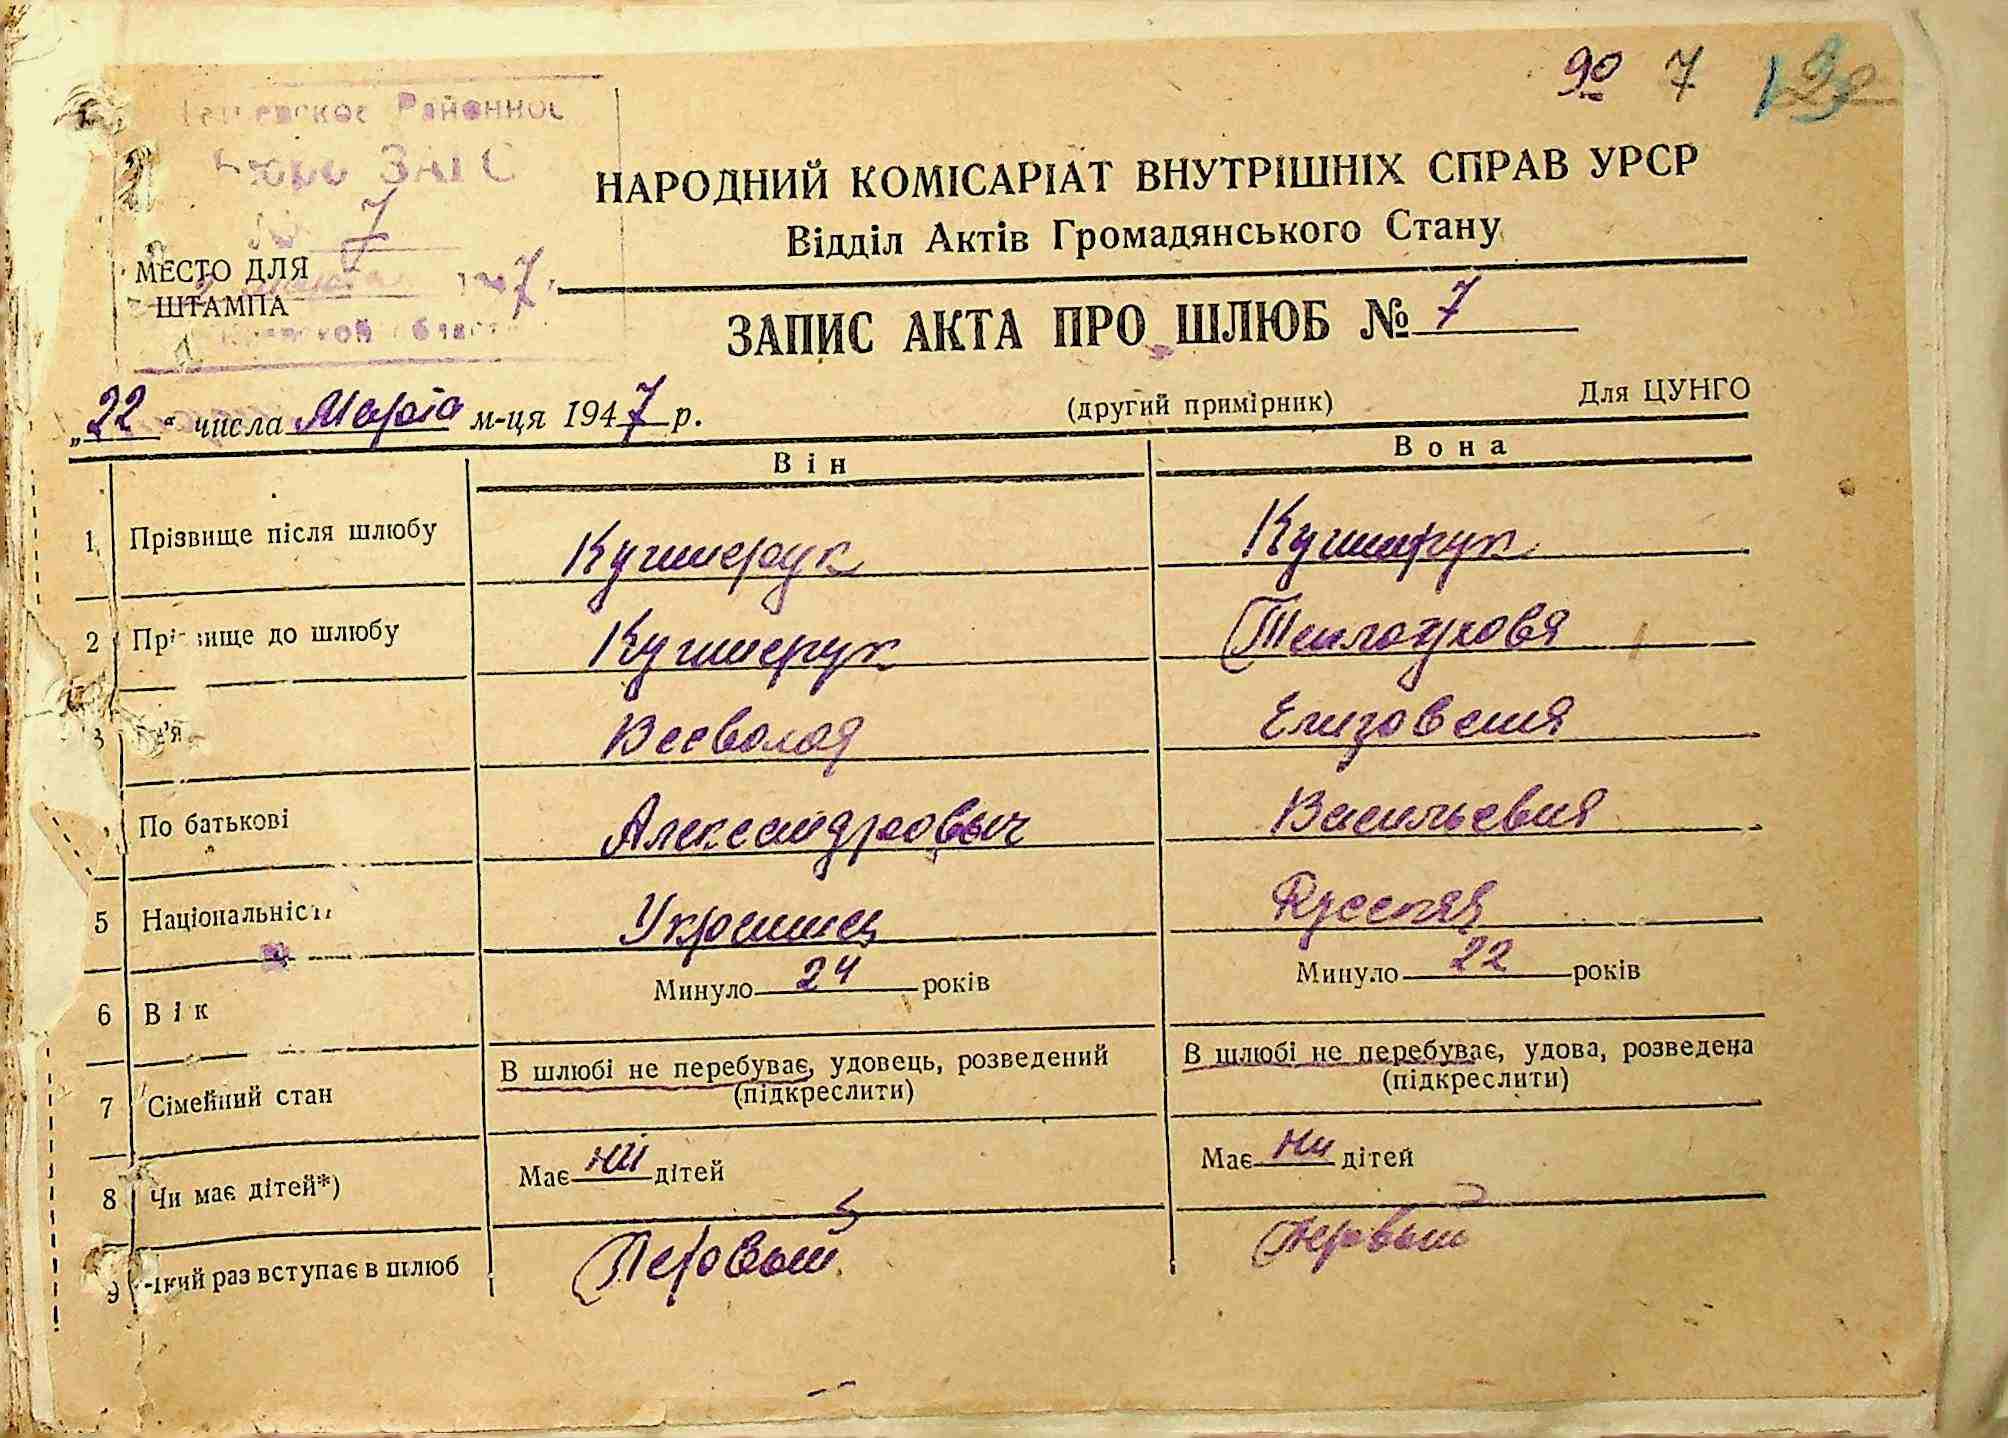 90 7
Районное
Бюро ЗАГС
№ 7
МЕСТО ДЛЯ
ШТАМПА
1947
НАРОДНИЙ КОМІСАРІАТ ВНУТРІШНІХ СПРАВ УРСР
Відділ Актів Громадянського Стану
ЗАПИС АКТА ПРО ШЛЮБ № 7
„22“ числа Марта м-ця 1947 р.
(другий примірник)
Для ЦУНГО
Він Вона
1. Прізвище після шлюбу Кушнерук Кушнерук
2 Прізвище до шлюбу Кушнерук
3 Всеволод Елизовета
По батькові Александрович Васильевна
5 Національність Украинец Русская
6 Вік Минуло 24 років Минуло 22 років
7 Сімейний стан В шлюбі не перебуває, удовець, розведений В шлюбі не перебуває, удова, розведена
(підкреслити) (підкреслити)
8 Чи має дітей*) Має ни дітей Має ни дітей
9 -який раз вступає в шлюб Первый Первый